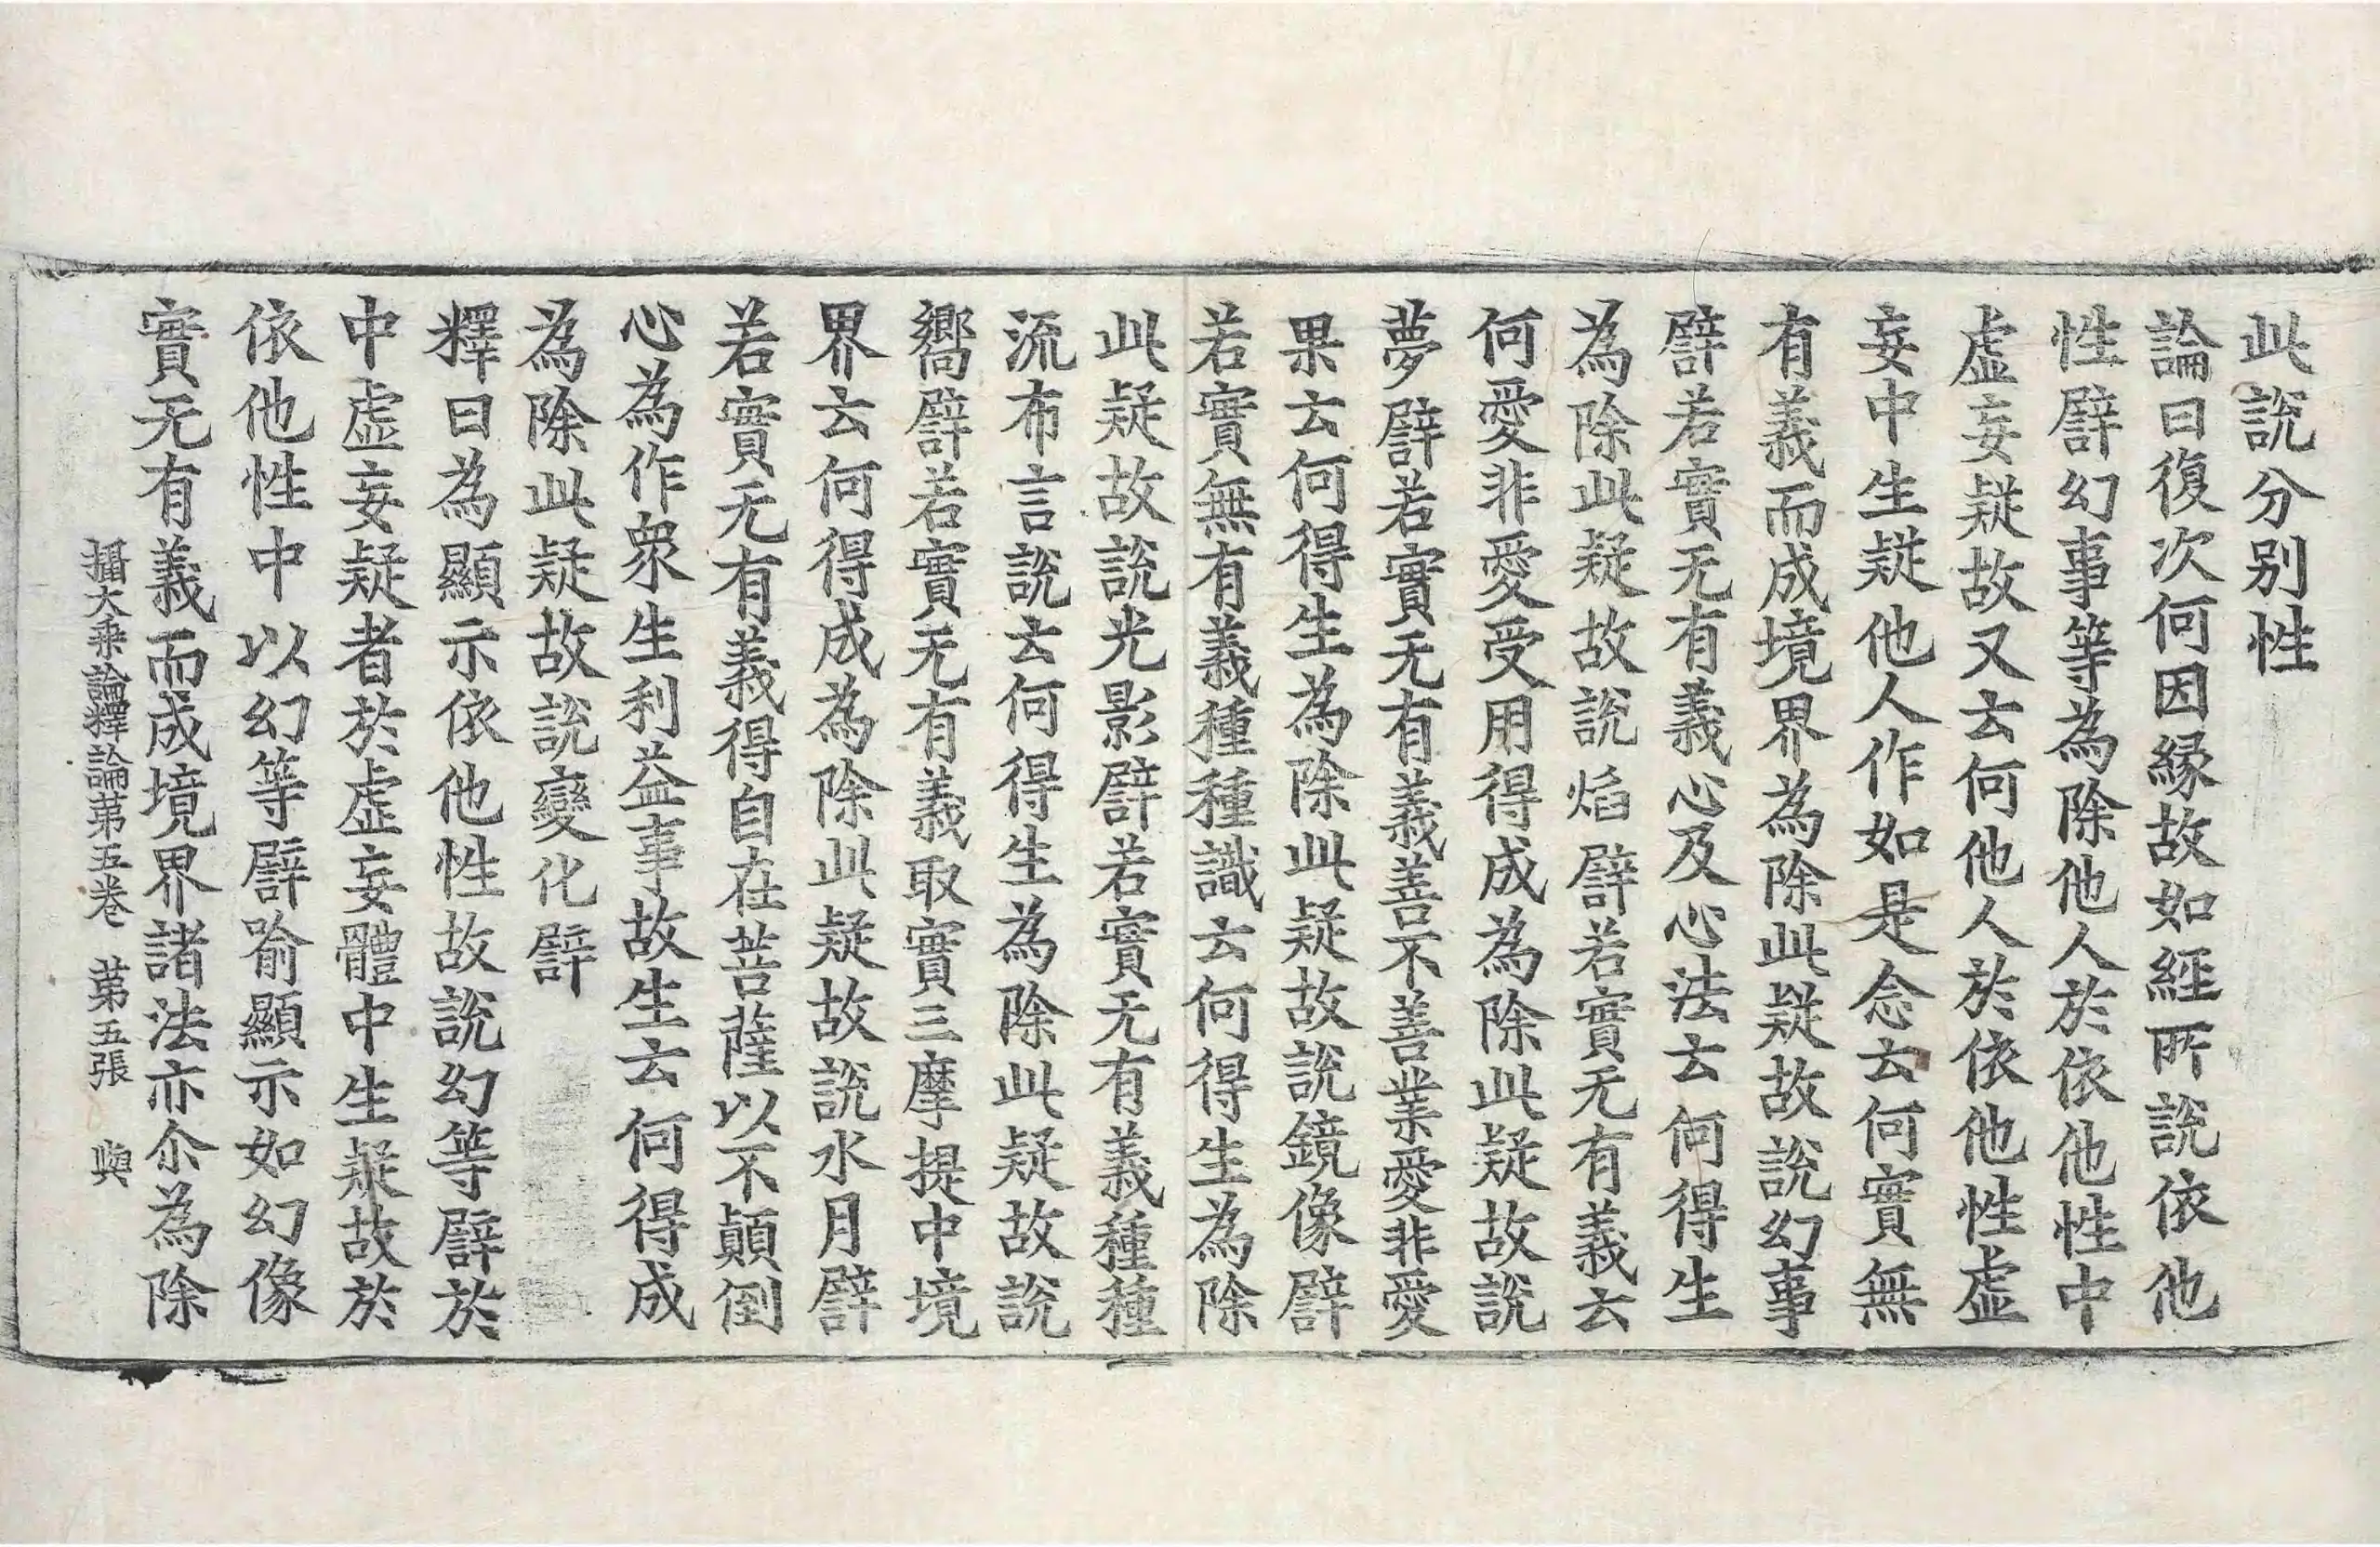 此說分別性
論曰復次何因縁故如經所說依他
性譬幻事等為除他人於依他性中
虛妄疑故又云何他人於依他性虛
妄中生疑他人作如是念云何實無
有義而成境界為除此疑故說幻事
譬若實无有義心及心法云何得生
為除此疑故說焰譬若實无有義云
何愛非愛受用得成為除此疑故說
夢譬若實无有義善不善業愛非愛
果云何得生為除此疑故說鏡像譬
若實無有義種種識云何得生為除
此疑故說光影譬若實无有義種種
流布言說云何得生為除此疑故說
嚮譬若實无有義取實三摩提中境
界云何得成為除此疑故說水月譬
若實无有義得自在菩薩以不顛倒
心為作衆生利益事故生云何得成
為除此疑故說變化譬
釋曰為顯示依他性故說幻等譬於
中虛妄疑者於虛妄體中生疑故於
依他性中以幻等譬喻顯示如幻像
實无有義而成境界諸法亦尒為除
攝大乘論釋論第五卷 第五張 輿